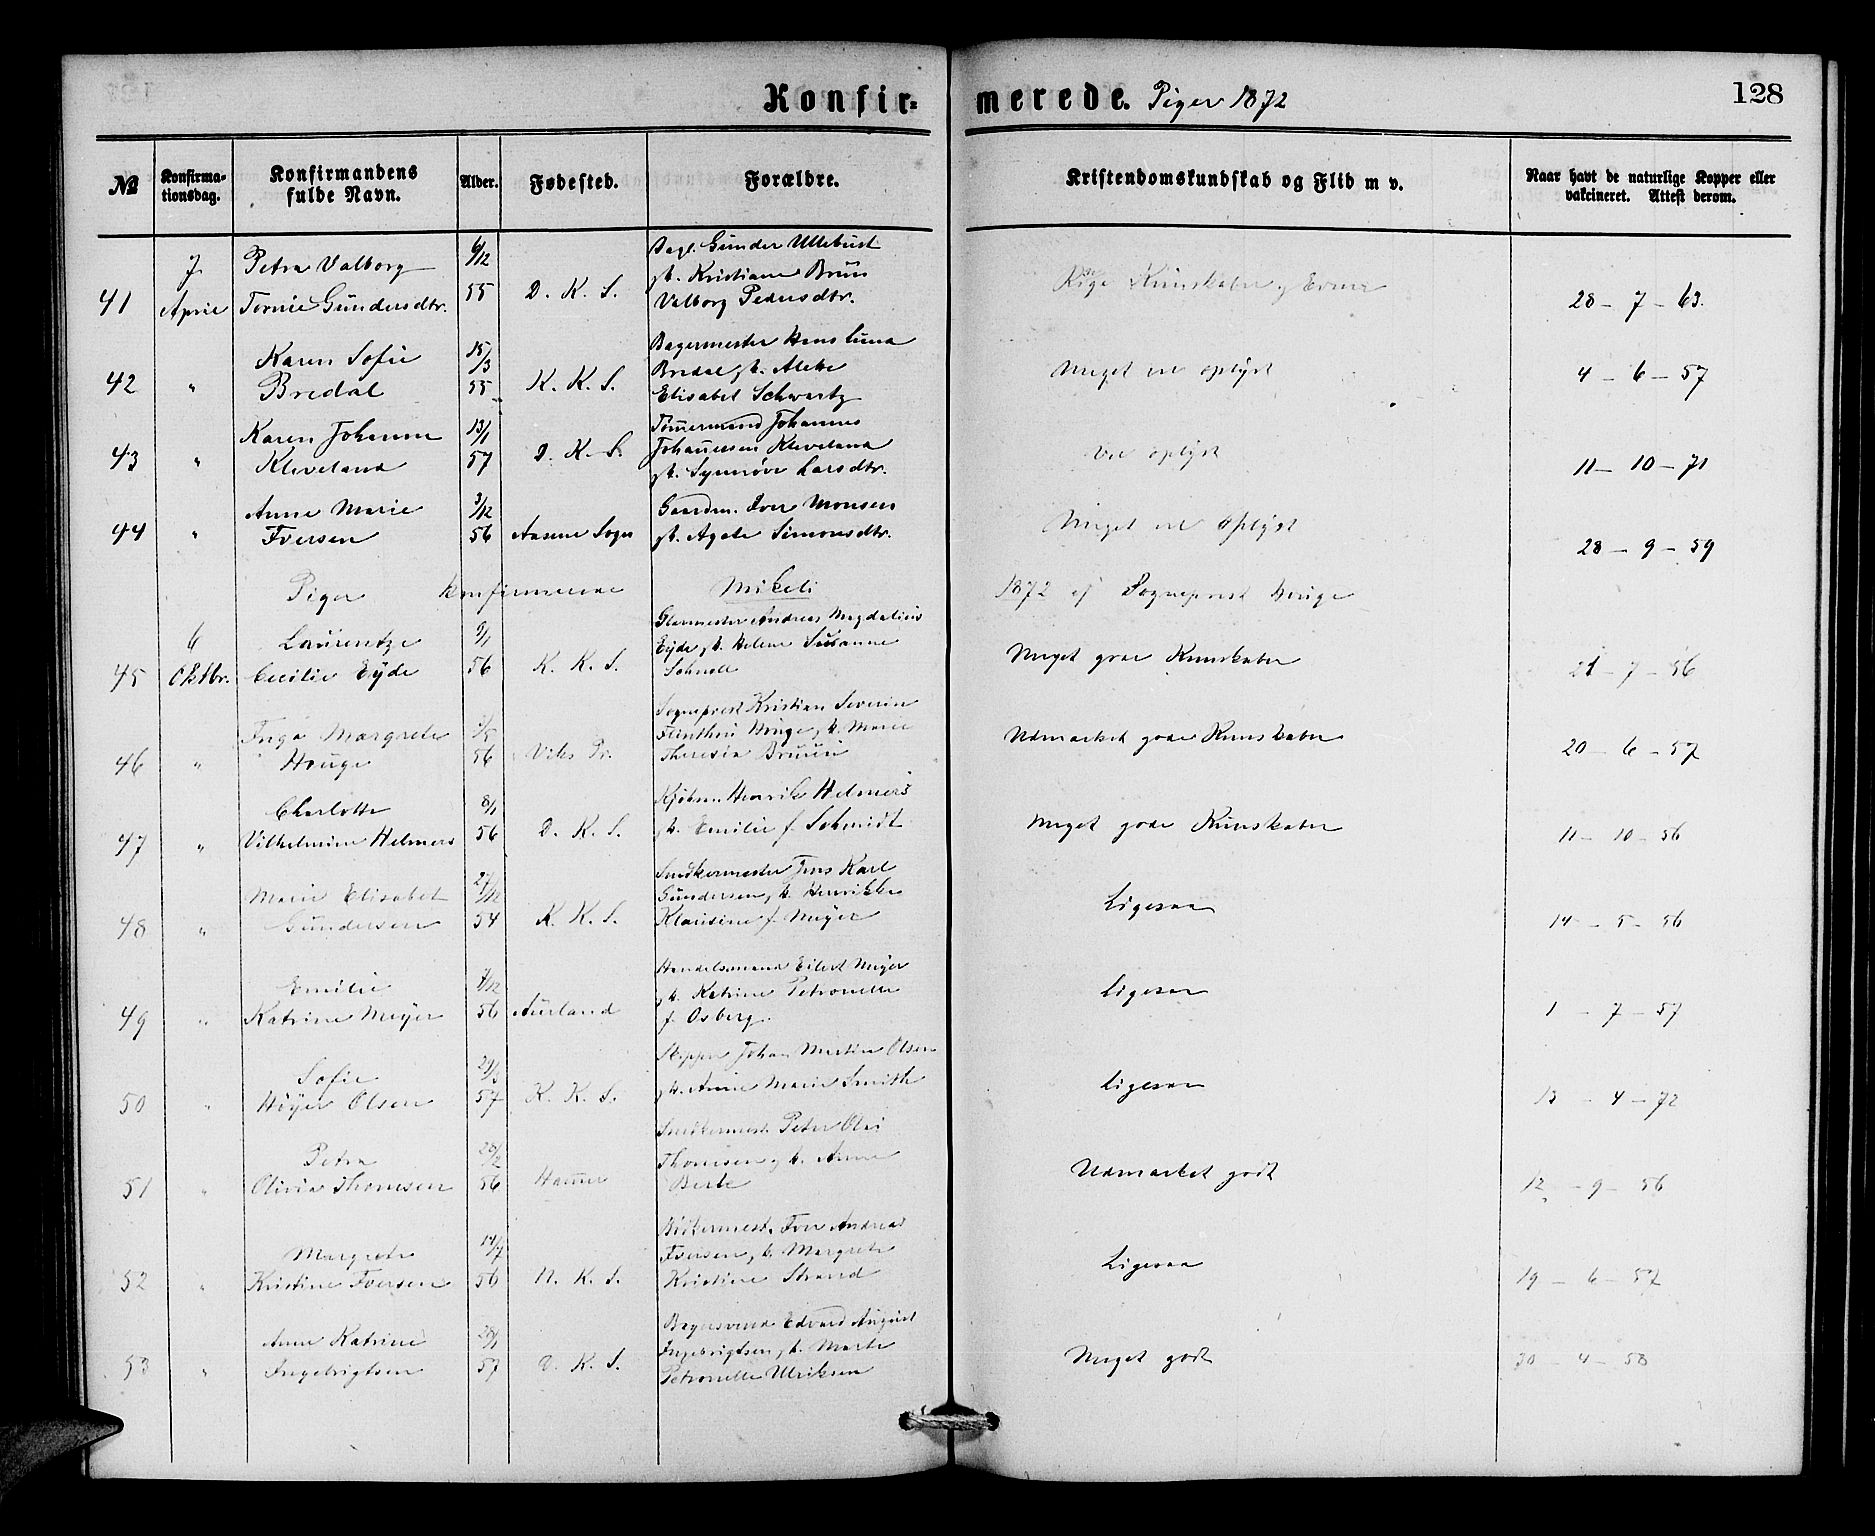 Konfir= merede. Piger 1872 128
№ Konfirma-tionsdag. Konfirmandens fulde Navn. Alder. Fødested. Forældre. Kristendomskundskab og Flid m v. Naar havt de naturlige Kopper eller vakcineret. Attest derom.
7 Petra Valborg 6/12 Dagl. Gunder Ullebust
gb. Kristiane Bruu
41 April Tornie Gundersdtr. 55 D. K. S. Valborg Pedersdtr. 28 - 7 - 63.
Karen Sofie 15/3 Bagermester Hans Lund
42 " Bredal 55 K. K. S. Bredal gb. Alette Meget vel oplyst 4 - 6 - 57
Elisabet Schwartz
Karen Johanne 13/1 Tømermand Johannes
43 " Kleveland 57 D. K. S. Johannesen Kleveland Vel oplyst 11 - 10 - 71
gb. Synnøve Larsdtr.
Anne Marie 3/12 Gaardm. Iver Monsen
44 " Iversen 56 Aasene Sogn gb. Agate Simonsdtr. Meget vel oplyst 28 - 9 - 59
Piger konfirmerede Mikeli 1872 af Sogneprest Houge
6 Laurentze 9/1 Glarmester Andreas Magdalius
Eyde gb. Helene Susanne
45 Oktbr. Cecilie Eyde 56 K. K. S. Schnell Meget gode Kunskaber 21 - 7 - 56
Sogneprest Kristian Severin
Inga Margrete /5 Houge, gb. Marie
46 " Houge 56 Viks Pr. Theresia Bruun Udmarket gode Kunskaber 20 - 6 - 57
Charlotte 8/1 Kjøbm. Henrik Helmers
47 " Vilhelmine Helmers 56 D. K. S. gb. Emilie f. Schmidt Meget gode Kunskaber 11 - 10 - 56
Marie Elisabet 27/12 Snedkermester Jens Karl
Gundersen, gb. Henrikke
48 " Gundersen 54 K. K. S. Klausine f. Meyer Ligesaa 14 - 5 - 56
Emilie /12 Handelsmand Eilert Meyer
gb. Katrine Petronelle
49 " Katrine Meyer 56 Aurland f. Osberg. Ligesaa 1 - 7 - 57
Sofie 29/3 Skipper Johan Martin Olsen
50 " Høyer Olsen 57 K. K. S. gb. Anne Marie Smith Ligesaa 13 - 4 - 72
Petra 20/2 Snedkermest. Peter Olai
Thomsen gb. Anne
51 " Olivia Thomsen 56 Hammer Berle Udmarket godt 12 - 9 - 56
Margrete 14/7 Bødkermest. Iver Andreas
Iversen, gb. Margrete
52 " Kristine Iversen 56 N. K. S. Kristine Strand Ligesaa 19 - 6 - 57
Anne Katrine 28/1 Bagersvend Edvard August
Ingebrigtsen gb. Marte
53 " Ingebrigtsen 57 D. K. S. Petronelle Ulriksen Meget godt 30 - 4 - 58